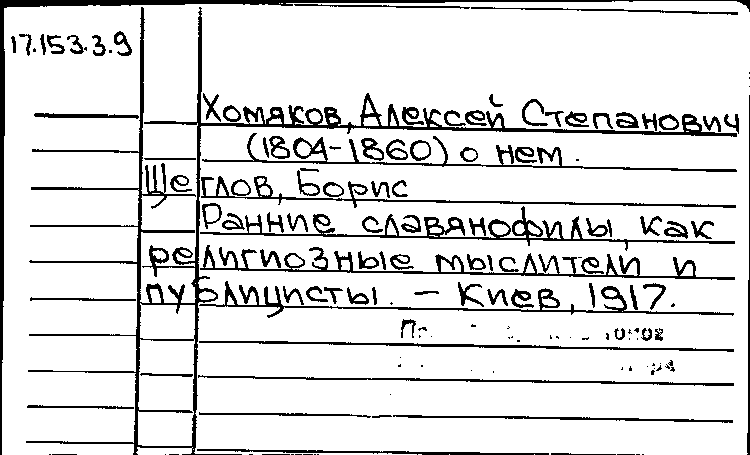 17.153.3.9
Хомяков, Алексей Степанович
(1804-1860) о нем.
Щеглов, Борис
Ранние славянофилы, как
религиозные мыслители и
публицисты. - Киев, 1917.